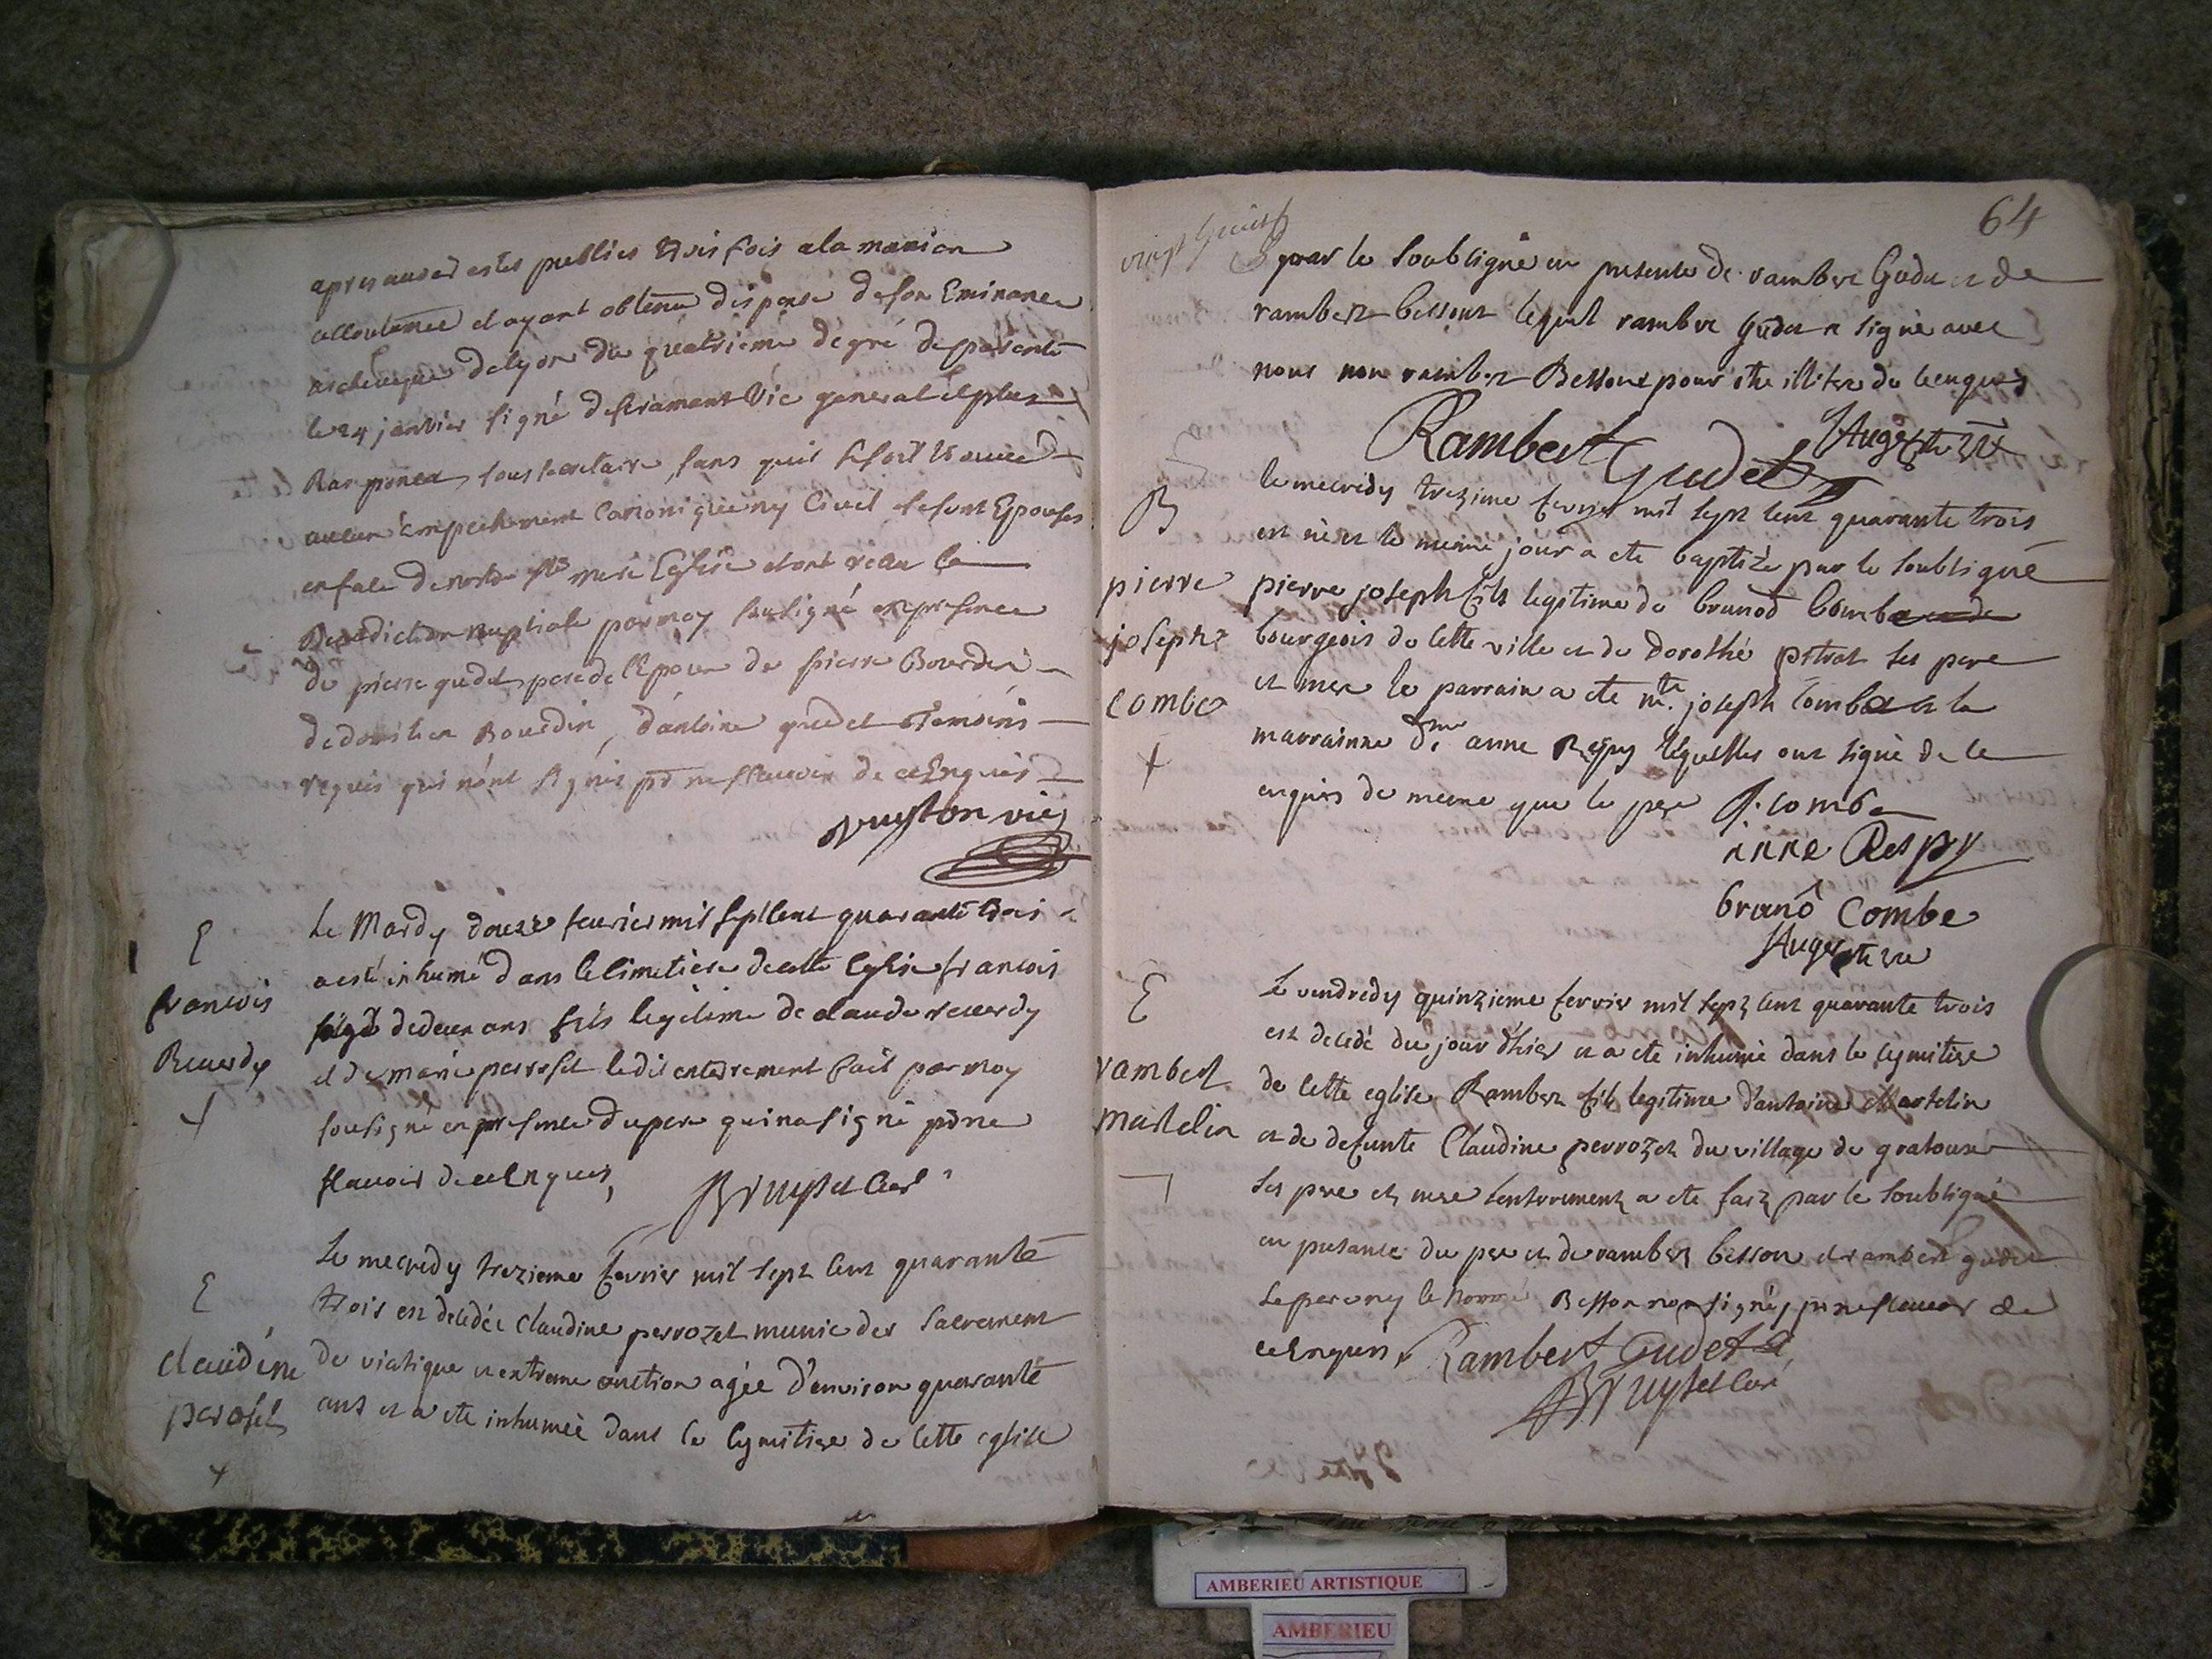 apres auoir estes publies trois fois a la maniere
accoutumee et ayant obtenu dispense de son Eminance
archeueque de lyon du quatrieme degré de parenté
le 24 janvier signé Vic general et plus
sous secretaire sans quil se soit trouué
aucun empechement Canonique ny Civil se sont Epouses
en face de notre ste mere Eglise et ont recu la
Benediction nuptiale par moy sousigné en presence
de pierre gudet pere de l'Epouse de pierre Bourdin
de Bourdin, d'antoine gudet temoins
requis qui n'ont signés po ne scauoir de ce Enquis
E
francois
Reuerdy
Le Mardy douze feurier mil sept cent quarante trois
a esté inhumé dans le cimetiere de cette Eglise francois
agé de deux ans fils legitime de claude reuerdy
et de marie perroset le dit enterrement fait par moy
sousigné en presence du pere qui na signé po ne
scauoir de ce Enquis,
Bruyset Curé
E
claudine
peroset
Le mecredy trezieme fevrier mil sept cent quarante
trois est decedée Claudine perrozet munie des sacrement
de viatique et extreme onction agée d'environ quarante
ans et a ete inhumée dans le cymitiere de cette eglise
64
vingt
par le soubsigné en presence de rambert Gudet et de
rambert bessont lequel rambert gudet a signé avec
nous non rambert Bessont pour etre illitere de ce enquis
Rambert Gudet
B
pierre
joseph
combe
le mecredy trezime fevrier mil sept cent quarante trois
est né et le meme jour a ete baptizé par le soubsigné
pierre joseph fils legitime de brunod Combe
bourgeois de cette ville et de Dorothé ses pere
et mere le parrain a ete mre joseph Combe et la
marrainne dme anne Respy lequelles ont signé de ce
enquis de meme que le pere J. combe
anne Respy
brunô Combe
E
rambert
martelin
Le vendredy quinzieme fevrier mil sept cent quarante trois
est decedé du jour d'hier et a ete inhumé dans le cymitiere
de cette eglise Rambert fils legitime d'antoine Martelin
et de defunte Claudine perrozet du village de gratoux
ses pere et mere l'enterrement a ete fait par le soubsigné
en presence du pere et de rambert besson et rambert gudet
Le pere ny le nommé Besson non signé po ne scauoir de
ce Enquis, Rambert Gudet
Bruyset Curé
AMBERIEU ARTISTIQUE
AMBERIEU